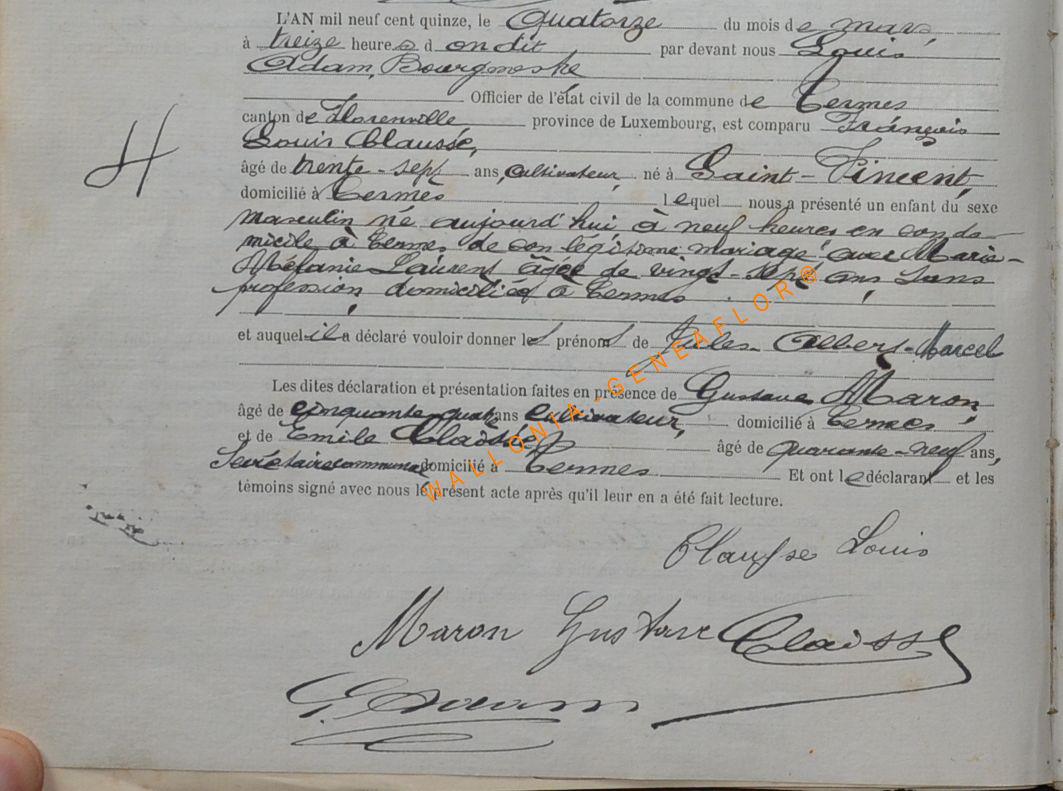 L'AN mil neuf cent quinze, le Quatorze du mois de mars,
à treize heures d ondit par devant nous Louis
Adam, Bourgmestre
Officier de l'état civil de la commune de Termes
canton de Florenville province de Luxembourg, est comparu François
Louis Clausse,
âgé de trente-sept ans, cultivateur, né à Saint-Vincent,
domicilié à Termes lequel nous a présenté un enfant du sexe
masculin né aujourd'hui, à neuf heures en son do-
micile à Termes de son légitime mariage avec Marie-
Mélanie Laurent âgée de vingt-sept ans sans
profession, domiciliée à Termes.
et auquel il a déclaré vouloir donner les prénoms de Jules-Albert-Marcel
Les dites déclaration et présentation faites en présence de Gustave Maron,
âgé de cinquante quatre ans cultivateur, domicilié à Termes
et de Emile Claisse âgé de quarante-neuf ans,
Secrétaire communal domicilié à Termes Et ont le déclarant et les
témoins signé avec nous le présent acte après qu'il leur en a été fait lecture.
Clausse Louis
Maron Gustave Claisse
Adam
WALLONIA-GENEAFLOR®